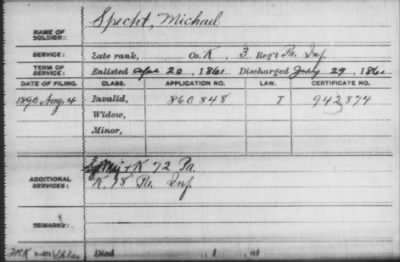 NAME OF SOLDIER: Specht, Michael
SERVICE: Late rank, Co. K, 3 Reg't Pa. Inf.
TERM OF SERVICE: Enlisted Apr 20, 1861 Discharged July 29, 1861
DATE OF FILING. CLASS. APPLICATION NO. LAW. CERTIFICATE NO.
1890 Aug. 4 Invalid, 860.848 J 942,874
Widow,
Minor,
ADDITIONAL SERVICES: K 72 Pa.
K. 78 Pa. Inf.
REMARKS:
Died , 1